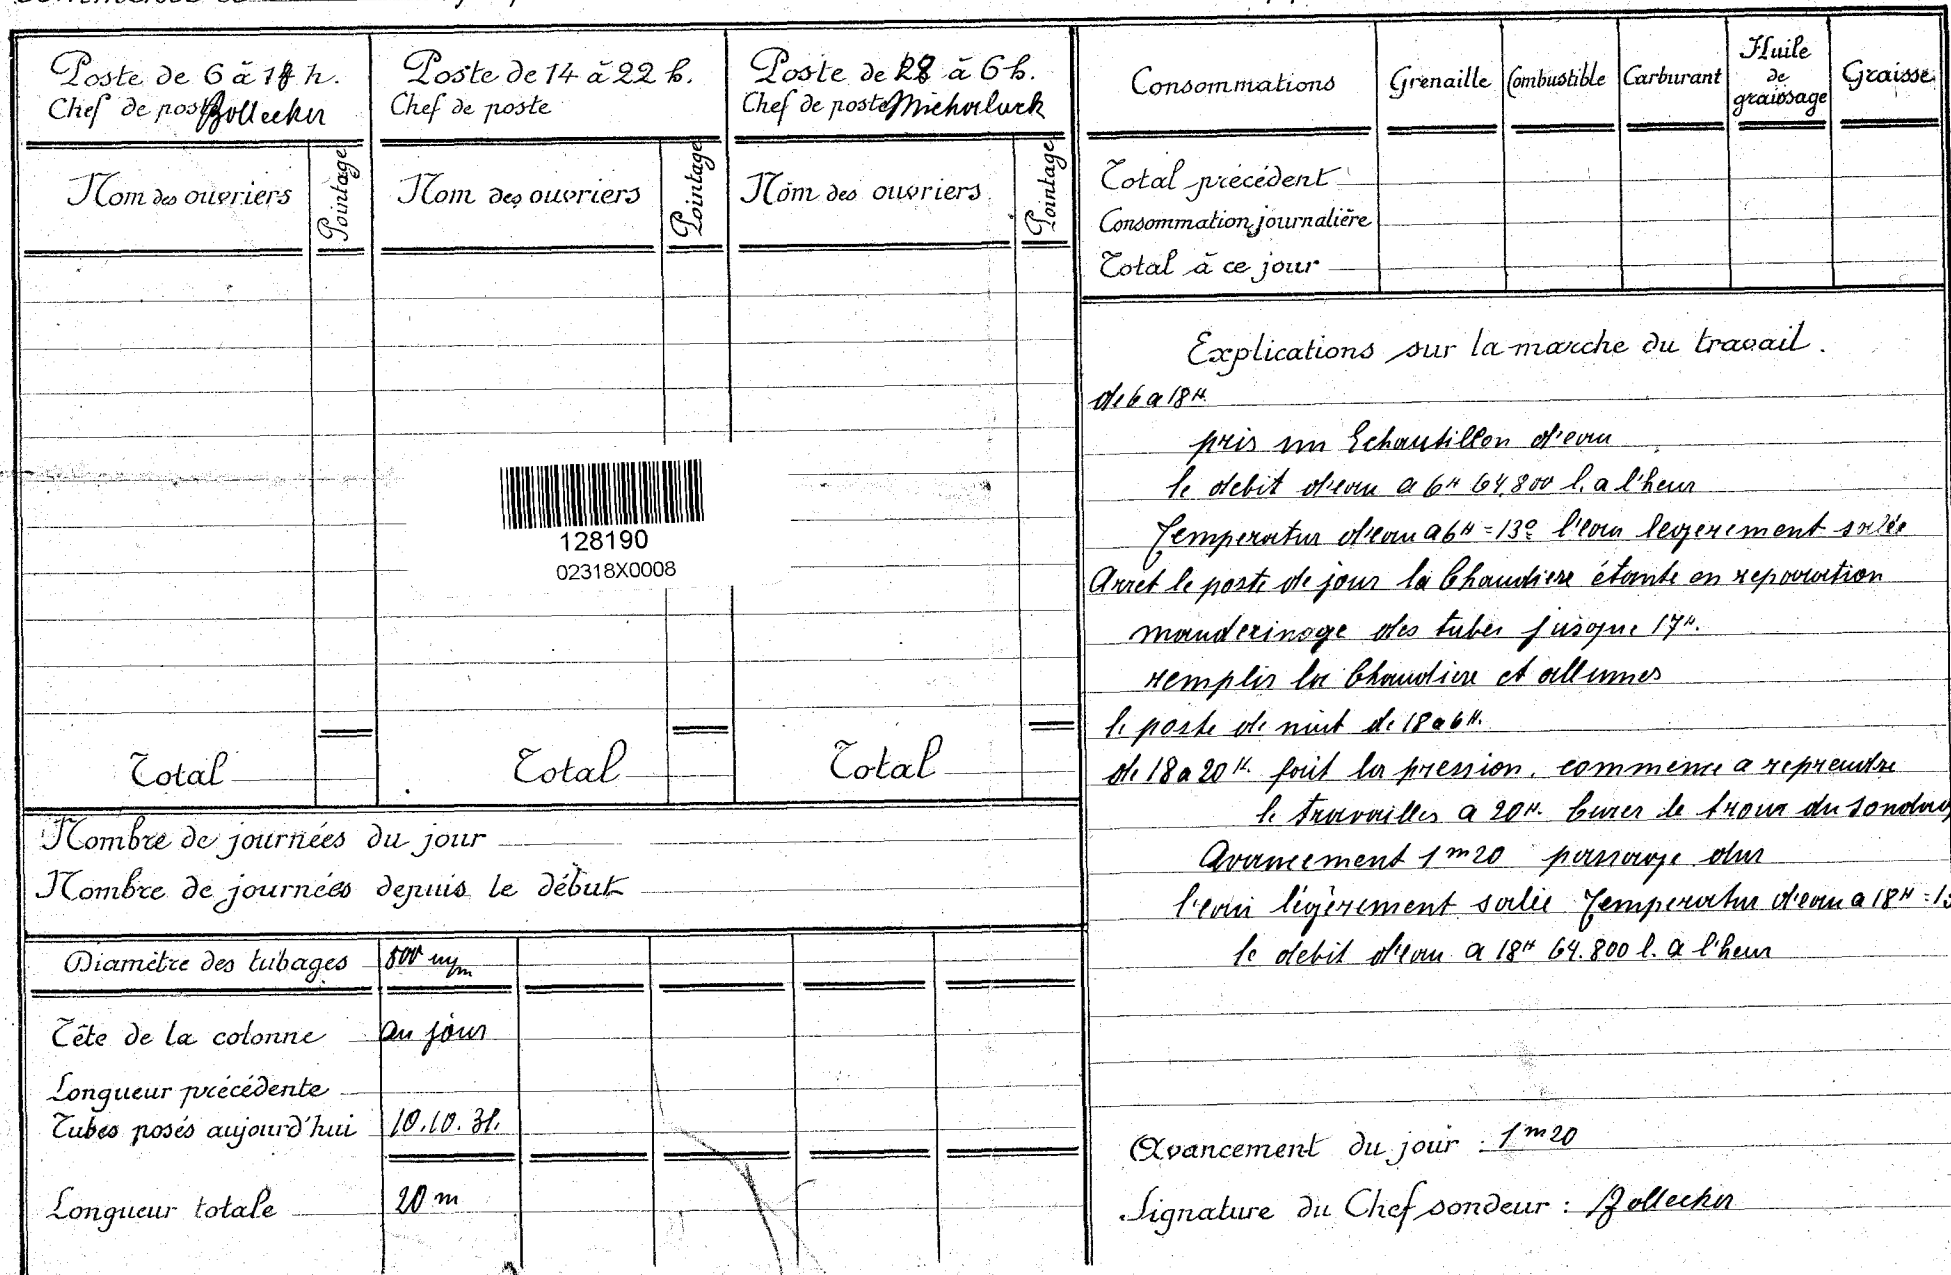 Poste de 6 à 18 h.
Chef de poste Bollecker
Nom des ouvriers
Pointage
Total
Poste de 14 à 22 h.
Chef de poste
Nom des ouvriers
Pointage
Total
Poste de 18 à 6 h.
Chef de poste
Nom des ouvriers
Pointage
Total
128190
02318X0008
Nombre de journées du jour
Nombre de journées depuis le début
Diamètre des tubages 500 m/m
Tête de la colonne au jour
Longueur précédente
Tubes posés aujourd'hui 10.10.31.
Longueur totale 20 m
Consommations Grenaille Combustible Carburant Huile de graissage Graisse
Total précédent
Consommation journalière
Total à ce jour
Explications sur la marche du travail.
de 6 a 18 H.
pris un Echantillon d'eau
le debit d'eau a 6 H 64,800 l. a l'heur
Temperatur d'eau a 6 H = 13° l'eau legerement salée
Arret le poste de jour la Chaudiere étante en reparation
manderinage des tubes jusque 17 H.
remplir la Chaudiere et allumes
le poste de nuit de 18 a 6 H.
de 18 a 20 H. fait la pression, commence a reprendre
le travailles a 20 H. Curer le troux du sondag
Avancement 1 m 20 passage dur
l'eau légèrement salée Temperatur d'eau a 18 H = 13
le debit d'eau a 18 H 64.800 l. a l'heur
Avancement du jour : 1 m 20
Signature du Chef sondeur : Bollecker